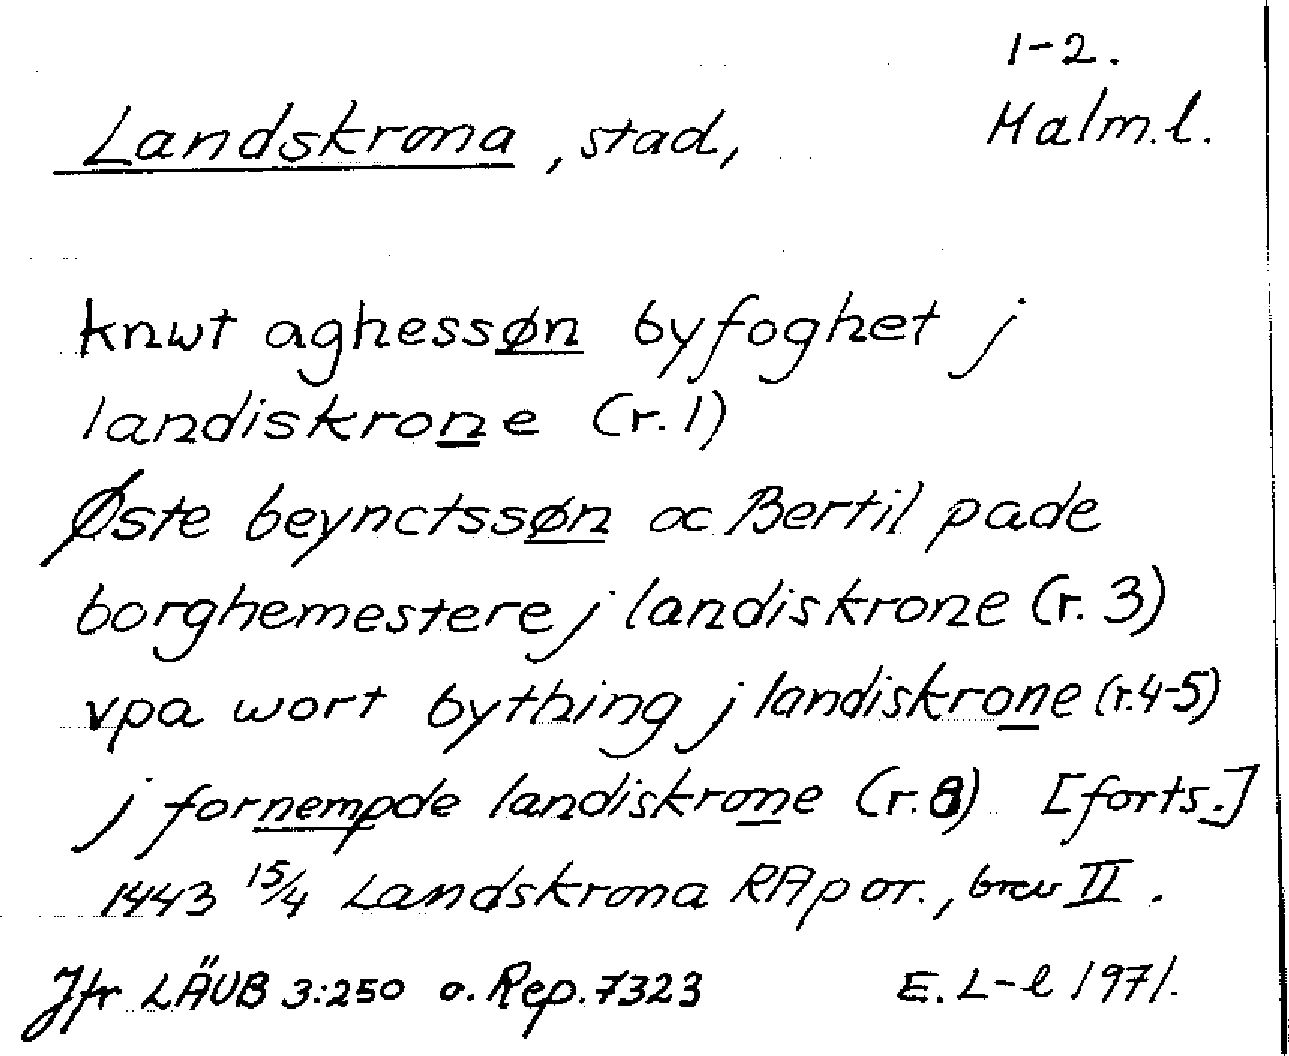 1-2.
Landskrona, stad, Malm.l.
knwt aghessøn byfoghet j
landiskrone (r.1)
Øste beynctssøn oc Bertil pade
borghemestere j landiskrone (r. 3)
vpa wort bything j landiskrone (r.4-5)
j fornempde landiskrone (r.8) [forts.]
1443 15/4 Landskrona RAp or., brev II.
Jfr LÄUB 3:250 o. Rep. 7323 E. L-l 1971.